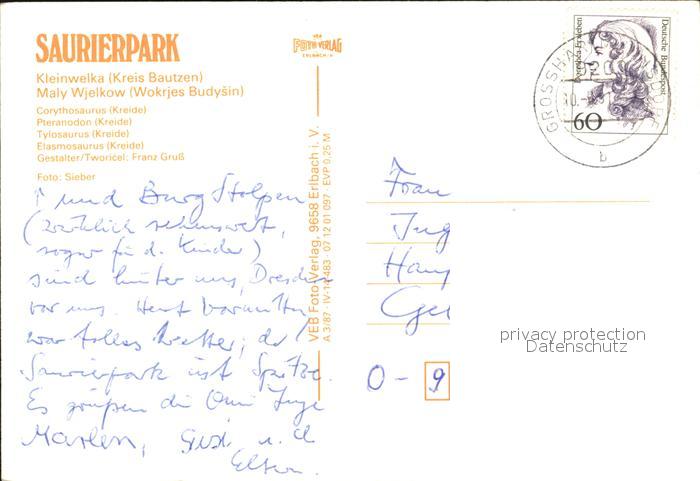 SAURIERPARK
Kleinwelka (Kreis Bautzen)
Maly Wjelkow (Wokrjes Budyšin)
Corythosaurus (Kreide)
Pteranodon (Kreide)
Tylosaurus (Kreide)
Elasmosaurus (Kreide)
Gestalter/Tworicel: Franz Gruß
Foto: Sieber
↑ und Burg Stolpen
(wirklich sehenswert,
sogar für d. Kinder)
sind hinter uns, Dresden
vor uns. Heut Vormittag
war tolles Wetter; der
Saurierpark ist Spitze.
Es grüßen die Omi Inge
Marlen, und d
Eltern.
FOTO-VERLAG
ERLBACH/V.
VEB Foto-Verlag, 9658 Erlbach i. V.
A 3/87 · IV-14-483 · 07 12 01 097 · EVP 0,25 M
Deutsche Bundespost
60
GROSSHA
b
Frau
Ing
Han
Ge
O - 9
privacy protection
Datenschutz